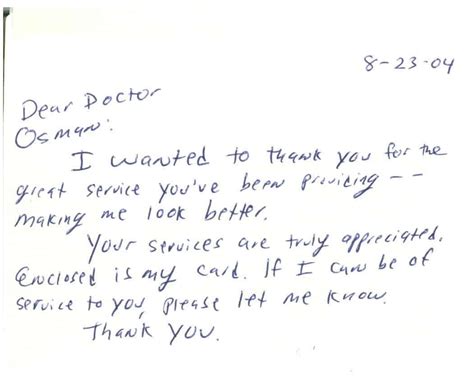 8-23-04
Dear Doctor
Osman:
I wanted to thank you for the
great service you've been providing --
making me look better.
Your services are truly appreciated.
Enclosed is my card. If I can be of
service to you, please let me know.
Thank you.